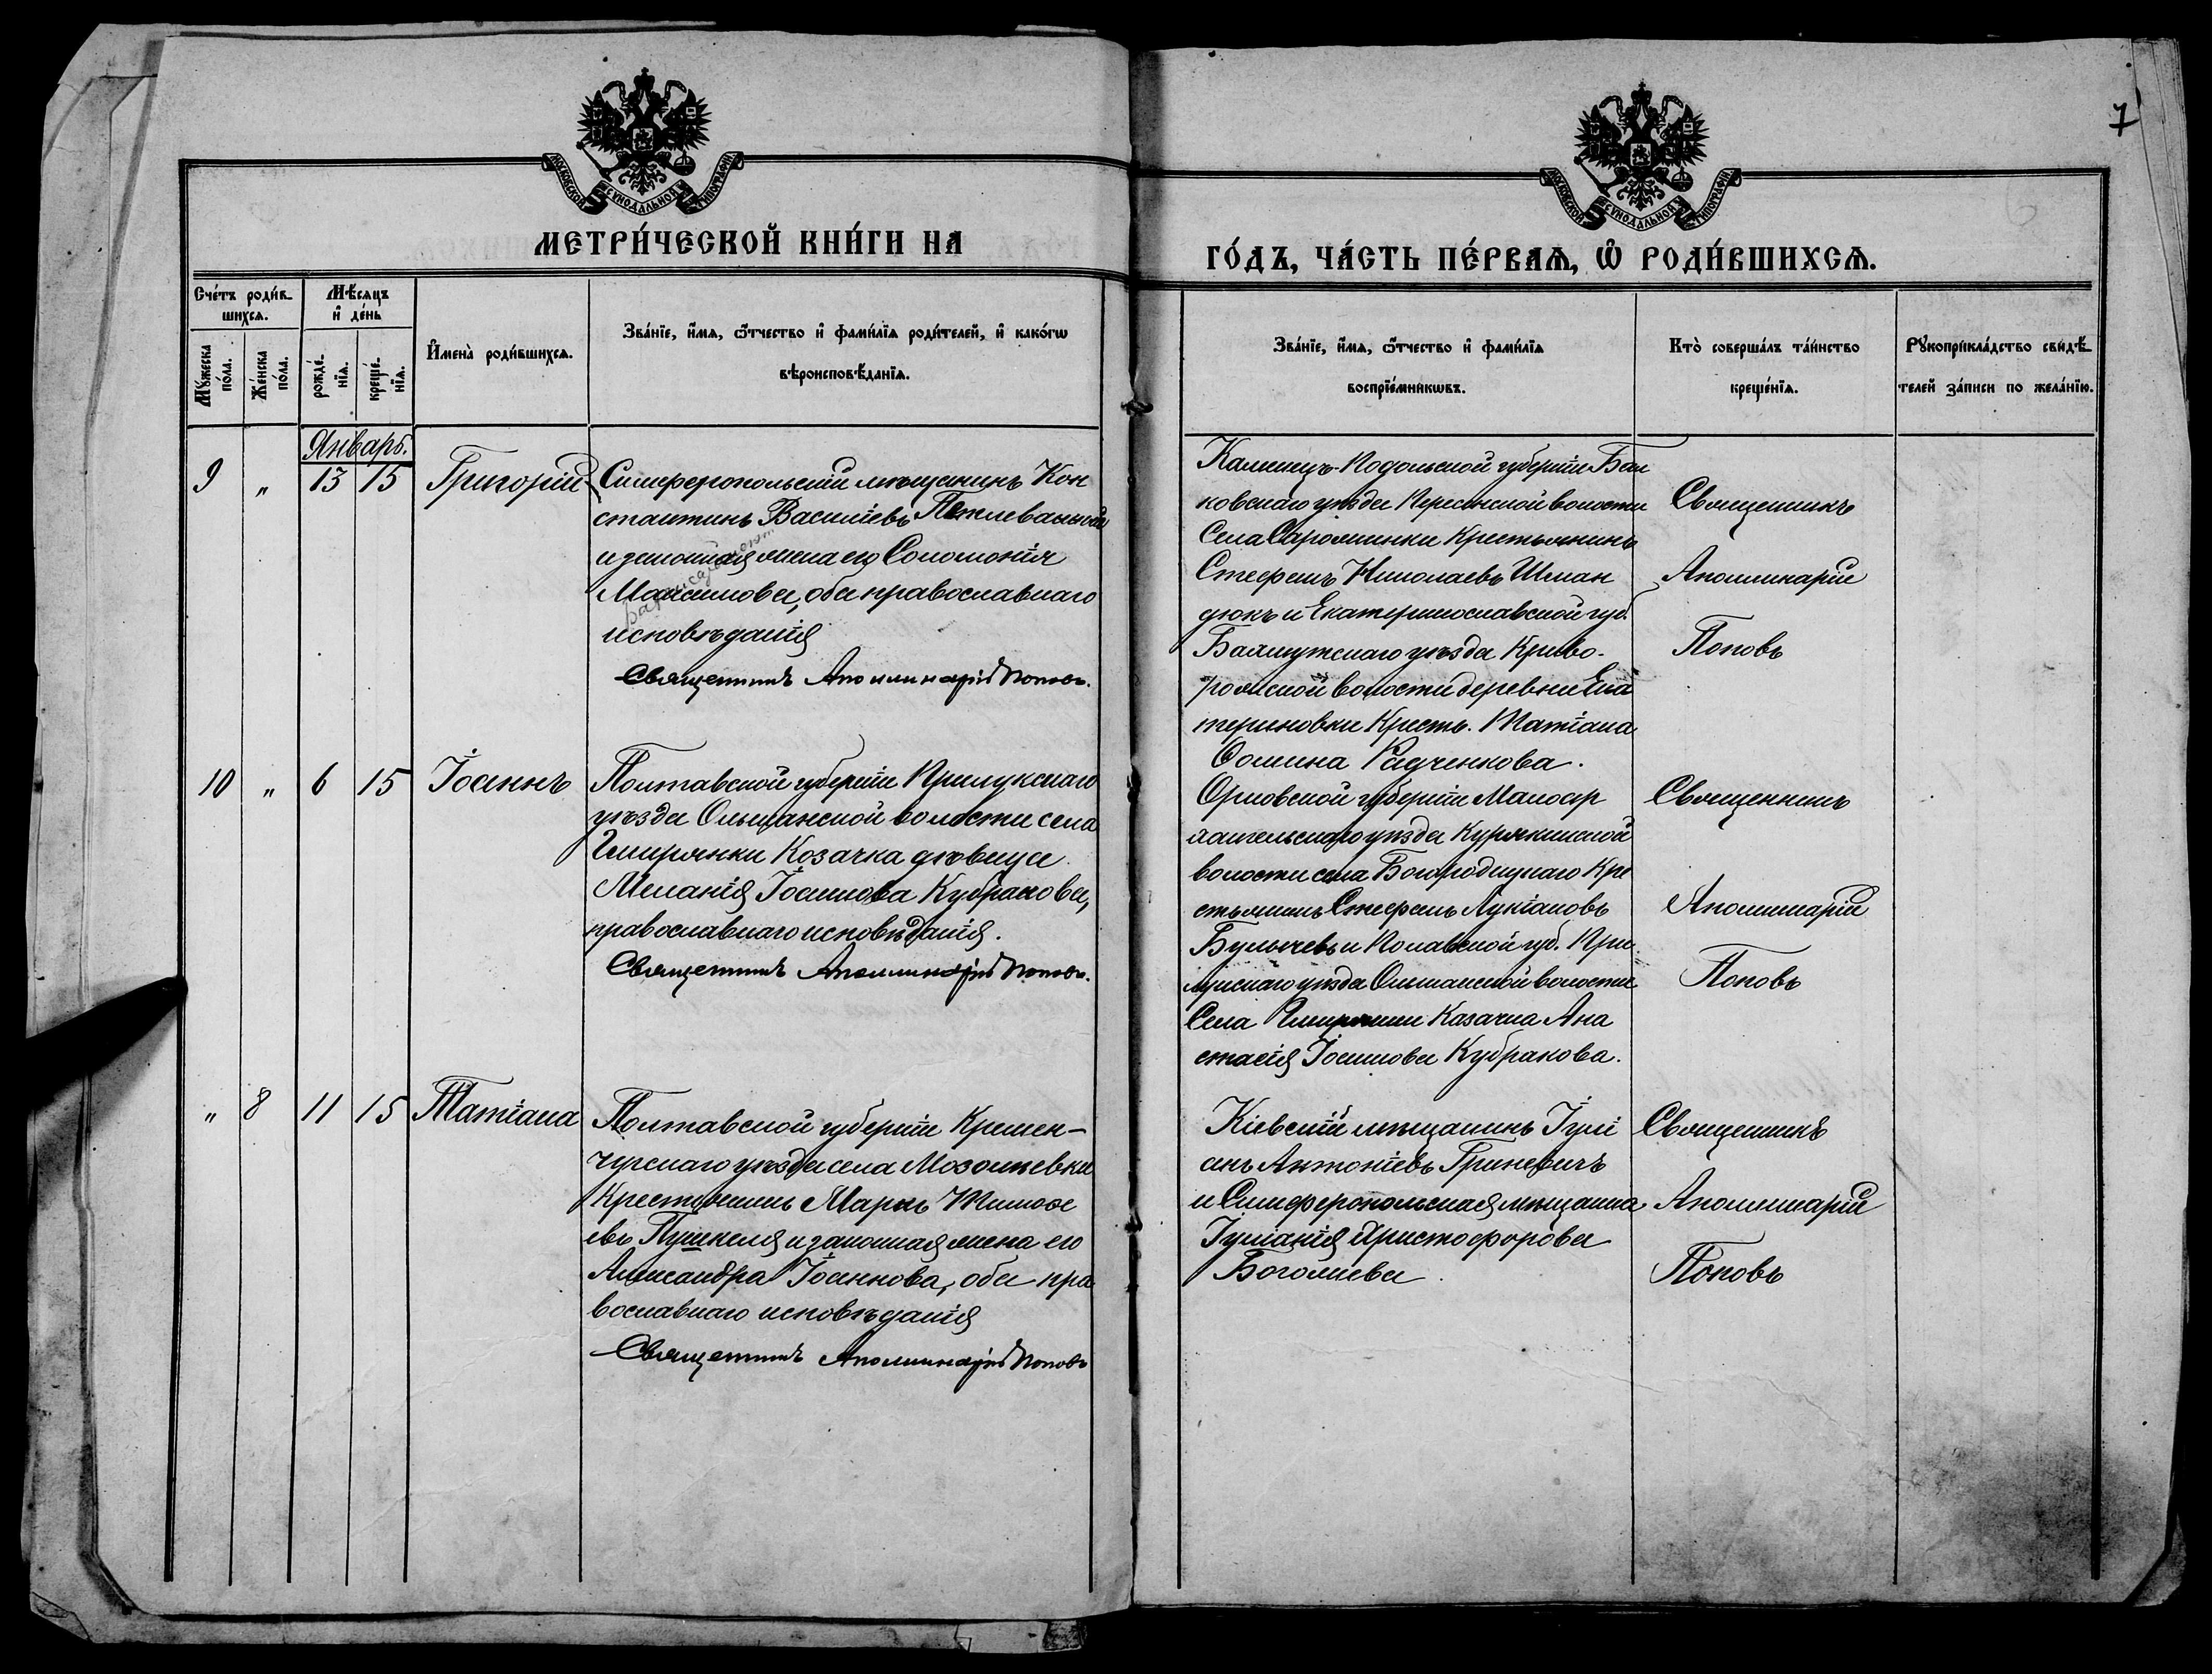 7
МОСКОВСКОЙ СУНОДАЛЬНОЙ ТИПОГРАФІИ
МОСКОВСКОЙ СУНОДАЛЬНОЙ ТИПОГРАФІИ
МЕТРИ́ЧЕСКОЙ КНИ́ГИ НА
ГО́ДЪ, ЧА́СТЬ ПЕ́РВАѦ, Ѡ҆ РОДИ́ВШИХСѦ.
Сче́тъ роди́в-
шихсѧ.
Мѣ́сяцъ
и҆ де́нь
Мꙋ́жеска
по́ла.
Же́нска
по́ла.
рожде́-
нїѧ.
креще́-
нїѧ.
И҆мена̀ роди́вшихсѧ.
Зва́нїе, и҆́мѧ, ѻ҆́тчество и҆ фами́лїѧ роди́телей, и҆ како́гѡ
вѣроисповѣ́данїѧ.
Зва́нїе, и҆́мѧ, ѻ҆́тчество и҆ фами́лїѧ
воспрїе́мникѡвъ.
Кто̀ соверша́лъ та́инство
креще́нїѧ.
Рꙋкоприкла́дство свидѣ́-
телей за́писи по жела́нїю.
Январь.
9 „ 13 15 Григорій
Симферопольскій мѣщанинъ Кон
стантинъ Василіевъ
и законная жена его Соломонія
Максимова, оба православнаго
исповѣданія
Священникъ Аполлинарій Поповъ.
Каменецъ-Подольской губерніи
ковскаго уѣзда волости
Села Крестьянинъ
Стефанъ Николаевъ Шман
дюкъ и Екатеринославской губ.
Бахмутскаго уѣзда Криво-
рожской волости деревни Ека
териновки Кресть. Татіана
Ѳомина Радченкова.
Священникъ
Аполлинарій
Поповъ
10 „ 6 15 Іоаннъ
Полтавской губерніи Прилукскаго
уѣзда Ольшанской волости села
Гмирянки Козачка дѣвица
Меланія Іоаннова Кубракова,
православнаго исповѣданія.
Священникъ Аполлинарій Поповъ.
Орловской губерніи Малоар
хангельскаго уѣзда Курякинской
волости села Богородицкаго Кре
стьянинъ Стефанъ Лукіановъ
Булычевъ и Полавской губ. При
лукскаго уѣзда Ольшанской волости
Села Гмирянки Казачка Ана
стасія Іоаннова Кубракова.
Священникъ
Аполлинарій
Поповъ
„ 8 11 15 Татіана
Полтавской губерніи Кремен-
чугскаго уѣзда села Мозолѣевки
Крестьянинъ Маркъ Тимоѳе
евъ Пушкеля и законная жена его
Александра Іоаннова, оба пра
вославнаго исповѣданія
Священникъ Аполлинарій Поповъ
Кіевскій мѣщанинъ Іулі
анъ Антоніевъ Гриневичъ
и Симферопольская мѣщанка
Іуліанія Христофорова
Священникъ
Аполлинарій
Поповъ